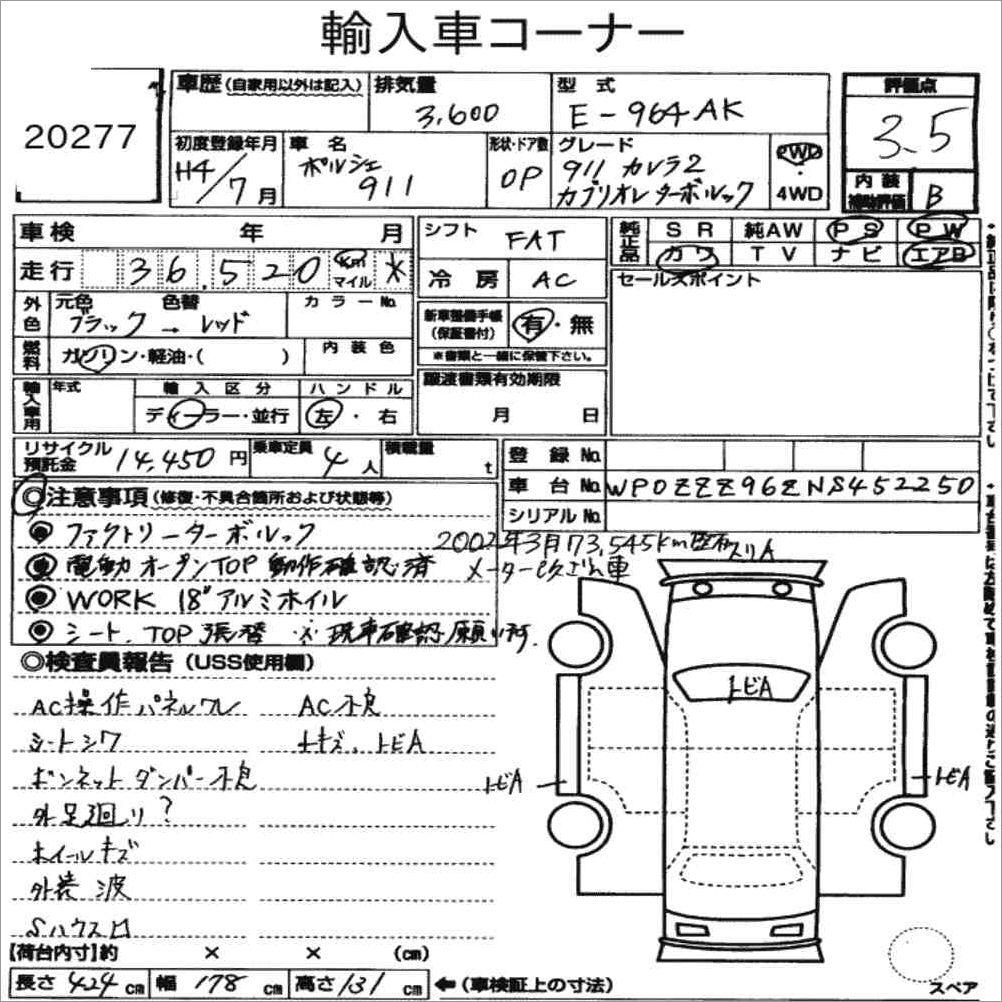 輸入車コーナー
20277
車歴(自家用以外は記入)
排気量
3,600
型式
E-964AK
評価点
3.5
初度登録年月
H4/7月
車名
ポルシェ
911
形状・ドア数
OP
グレード
911 カレラ2
カブリオレ ターボルック
2WD
4WD
内装
補助評価
B
車検 年 月
シフト FAT
純正品 SR 純AW PS PW
カワ TV ナビ エアB
走行 36,520 Km マイル *
冷房 AC
セールスポイント
外色 元色 色替 カラーNo.
ブラック → レッド
新車整備手帳
(保証書付)
有・無
※書類と一緒に保管下さい。
燃料 ガソリン・軽油・( )
内装色
譲渡書類有効期限
月 日
輸入車用 年式 輸入区分 ハンドル
ディーラー・並行 左・右
リサイクル
預託金
14,450円
乗車定員 4人
積載量 t
登録No.
車台No. WP0ZZZ96ZNS452250
シリアルNo.
◎注意事項(修復・不具合箇所および状態等)
◉ ファクトリーターボルック
2002年3月73,545km
スリA
◉ 電動オープンTOP 動作確認済
メーター改ざん車
◉ WORK 18"アルミホイル
◉ シート、TOP張替 ※現車確認願います
◎検査員報告(USS使用欄)
AC操作パネルワレ
AC不良
シートシワ
キズ、トビA
ボンネットダンパー不良
外足廻り?
ホイールキズ
外装 波
Sハウス凹
トビA
トビA
トビA
【荷台内寸】約 × × (cm)
長さ 424 cm 幅 178 cm 高さ 131 cm ←(車検証上の寸法)
スペア